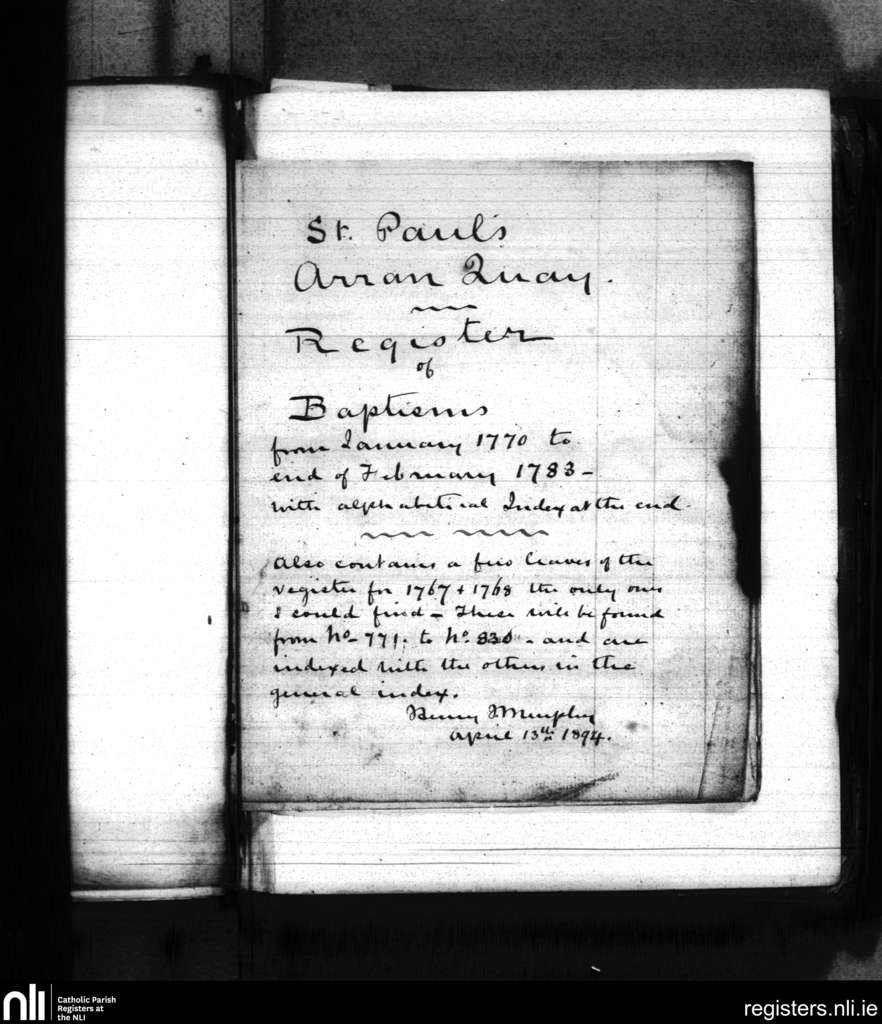 St. Paul's
Arran Quay.
Register
of
Baptisms
from January 1770 to
end of February 1783 -
with alphabetical Index at the end.
Also contains a few leaves of the
register for 1767 + 1768 the only ones
I could find - These will be found
from No. 771. to No. 830 - and are
indexed with the others in the
general index.
Henry Murphy
April 13th 1894.
nli
Catholic Parish
Registers at
the NLI
registers.nli.ie